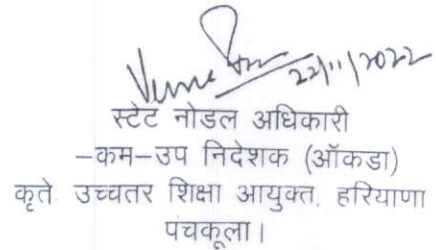 22/11/2022
स्टेट नोडल अधिकारी
-कम-उप निदेशक (ऑकडा)
कृते उच्चतर शिक्षा आयुक्त, हरियाणा
पंचकूला।